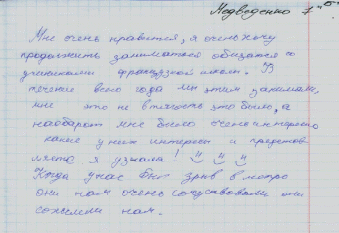 Медведенко 7 "Б"
Мне очень нравится, я очень хочу
продолжить заниматься общаться со
учениками французкой школы. В
течение всего года мы этим занимали,
мне это не в тягость это было, а
наоборот мне было очень интересно
какие у них интересы и
я узнала!
Когда у нас был взрыв в метро
они нам очень сочувствовали они
сожелели нам.